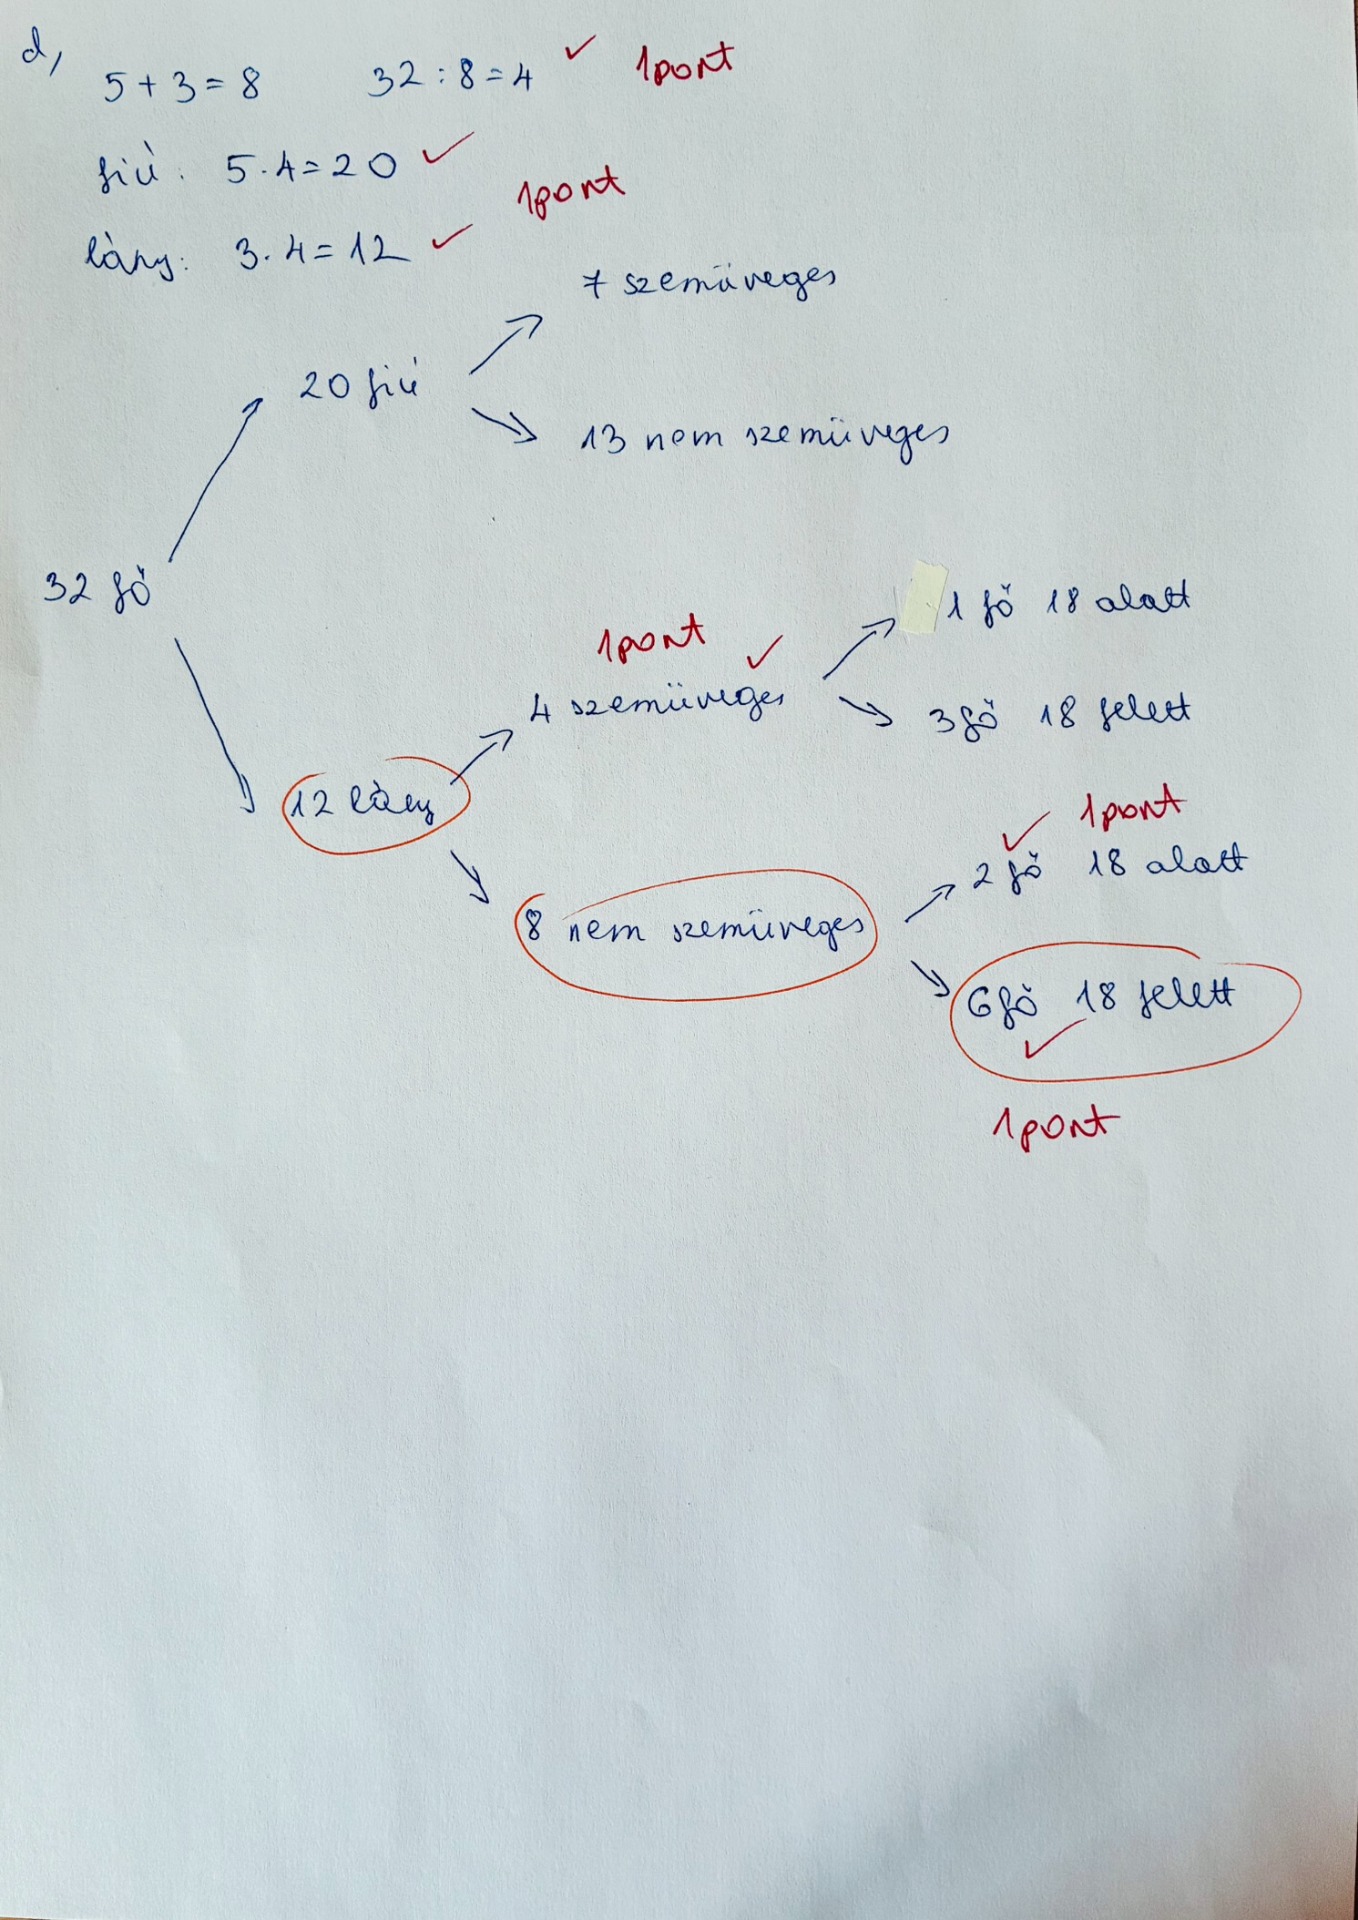 d,
5 + 3 = 8 32 : 8 = 4 ✓ 1pont
fiú: 5 · 4 = 20 ✓
1pont
lány: 3 · 4 = 12 ✓
7 szemüveges
20 fiú
13 nem szemüveges
32 fő
1 fő 18 alatt
1pont ✓
4 szemüveges
3 fő 18 felett
12 lány
✓ 1pont
2 fő 18 alatt
8 nem szemüveges
6 fő 18 felett
✓
1pont